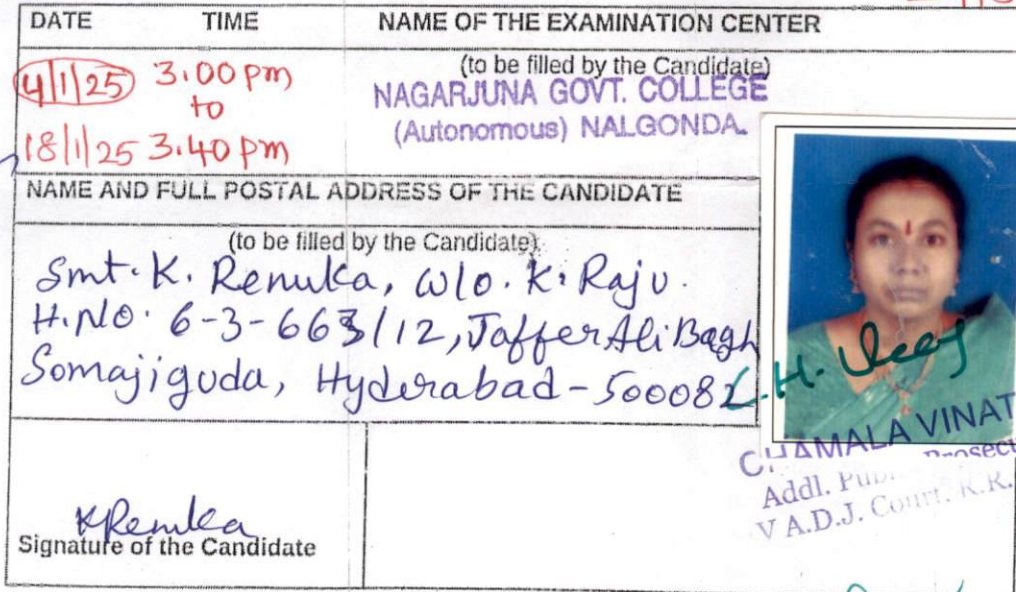 DATE TIME NAME OF THE EXAMINATION CENTER
(to be filled by the Candidate)
4/1/25 3.00 pm
to
18/1/25 3.40 pm
NAGARJUNA GOVT. COLLEGE
(Autonomous) NALGONDA.
NAME AND FULL POSTAL ADDRESS OF THE CANDIDATE
(to be filled by the Candidate)
Smt. K. Renuka, W/o. K. Raju.
H.No. 6-3-663/12, Jaffer Ali Bagh
Somajiguda, Hyderabad - 500082
CHAMALA VINAT
Addl. Pub
V A.D.J. Court. R.R.
K Renuka
Signature of the Candidate